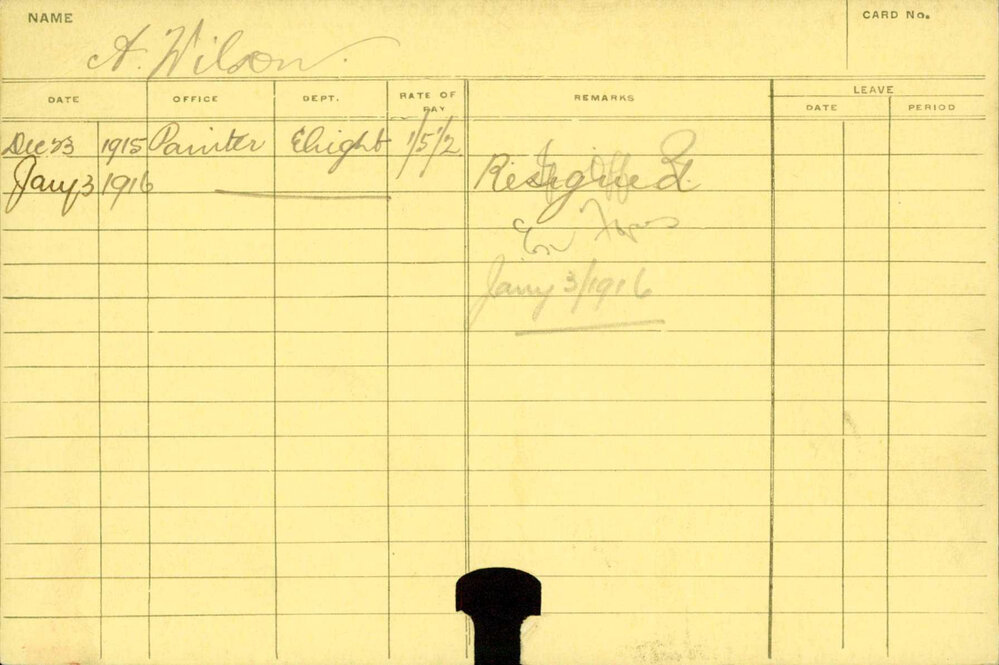 NAME
CARD No.
A. Wilson.
DATE OFFICE DEPT. RATE OF PAY REMARKS LEAVE
DATE PERIOD
Dec 23 1915 Painter Elight 1/5/2
Jany 3 1916 Resigned
Jany 3/1916